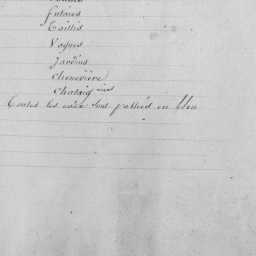 futaies
Taillis
Vagues
Jardins
Chenevière
Chataigniers
Toutes les eaux sont passées en bleu